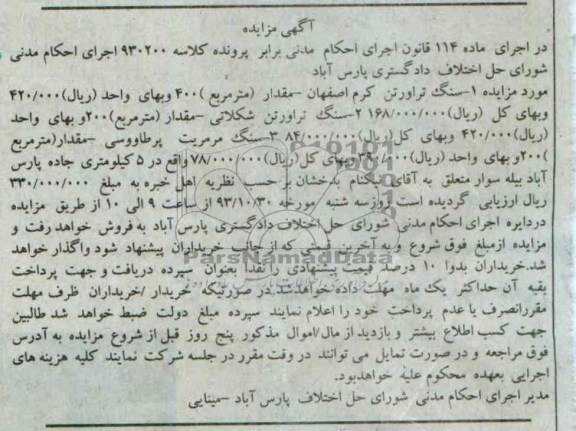 آگهی مزایده
در اجرای ماده ۱۱۴ قانون اجرای احکام مدنی برابر پرونده کلاسه ۹۳۰۲۰۰ اجرای احکام مدنی
شورای حل اختلاف دادگستری پارس آباد
مورد مزایده ۱-سنگ تراورتن کرم اصفهان -مقدار (مترمربع )۴۰۰ وبهای واحد (ریال)۴۲۰/۰۰۰
وبهای کل (ریال)۱۶۸/۰۰۰/۰۰۰ ۲-سنگ تراورتن شکلاتی -مقدار (مترمربع)۲۰۰و بهای واحد
(ریال)۴۲۰/۰۰۰ وبهای کل(ریال)۸۴/۰۰۰/۰۰۰ ۳-سنگ مرمریت پرطاووسی -مقدار(مترمربع
)۲۰۰و بهای واحد (ریال)۳۹۰/۰۰۰وبهای کل(ریال)۷۸/۰۰۰/۰۰۰واقع در ۵ کیلومتری جاده پارس
آباد بیله سوار متعلق به آقای نیکنام بدخشان بر حسب نظریه اهل خبره به مبلغ ۳۳۰/۰۰۰/۰۰۰
ریال ارزیابی گردیده است روزسه شنبه مورخه ۹۳/۱۰/۳۰ از ساعت ۹ الی ۱۰ از طریق مزایده
دردایره اجرای احکام مدنی شورای حل اختلاف دادگستری پارس آباد به فروش خواهد رفت و
مزایده ازمبلغ فوق شروع و به آخرین قیمتی که از جانب خریداران پیشنهاد شود واگذار خواهد
شد.خریداران بدوا ۱۰ درصد قیمت پیشنهادی را نقدا بعنوان سپرده دریافت و جهت پرداخت
بقیه آن حداکثر یک ماه مهلت داده خواهدشد.در صورتیکه خریدار /خریداران ظرف مهلت
مقررانصرف یا عدم پرداخت خود را اعلام نمایند سپرده مبلغ دولت ضبط خواهد شد طالبین
جهت کسب اطلاع بیشتر و بازدید از مال/اموال مذکور پنج روز قبل از شروع مزایده به آدرس
فوق مراجعه و در صورت تمایل می توانند در وقت مقرر در جلسه شرکت نمایند کلیه هزینه های
اجرایی بعهده محکوم علیه خواهدبود.
مدیر اجرای احکام مدنی شورای حل اختلاف پارس آباد -مینایی
ParsNamadData